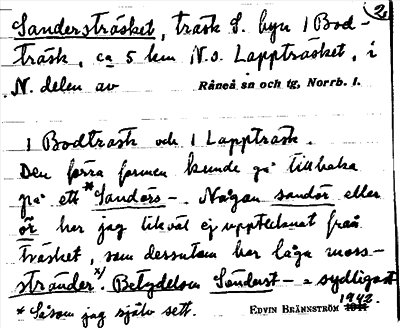 2.
Sandersträsket, träsk S. byn i Bod-
träsk, ca 5 km N.o. Lappträsket, i
N. delen av Råneå sn och tg, Norrb. l.
i Bodträsk och i Lappträsk.
Den förra formen kunde gå tillbaka
på ett *Sandörs-. Någon sandör eller
ör har jag likväl ej upptecknat från
träsket, som dessutom har låga moss-
stränder*). Betydelsen Sönderst- = sydligast
* Såsom jag själv sett. EDVIN BRÄNNSTRÖM 1942.